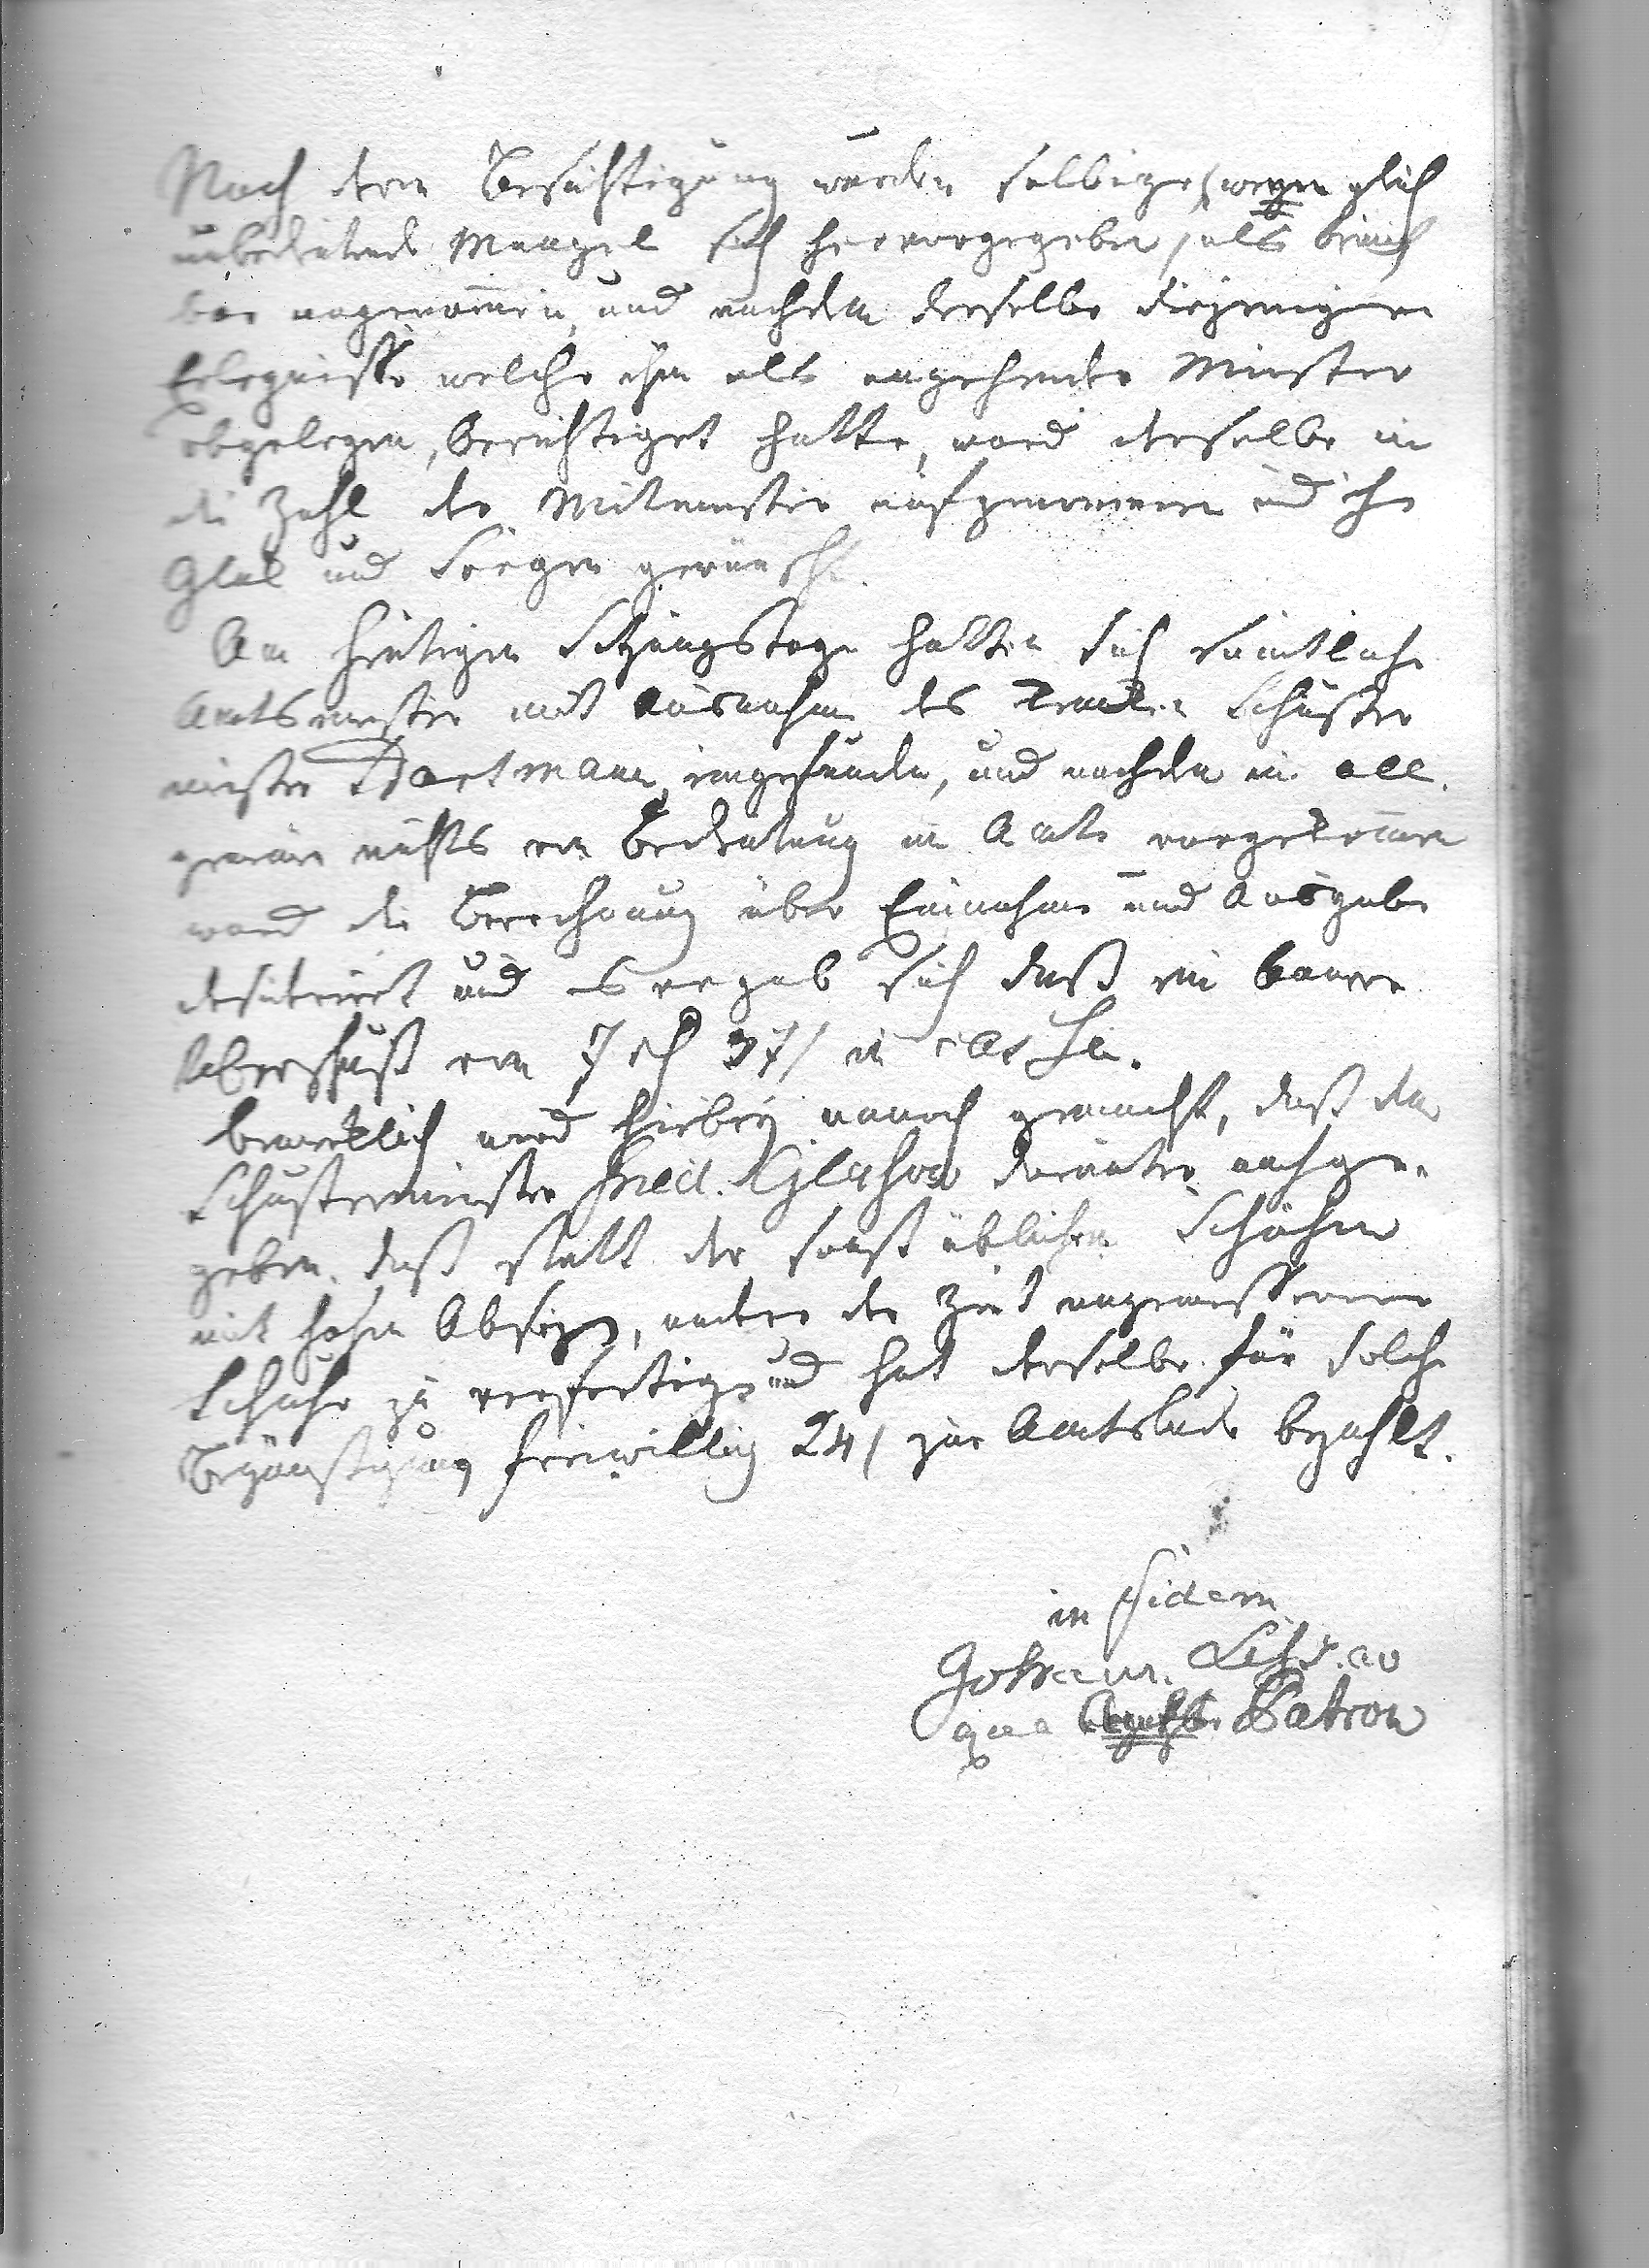 Nach deren Besichtigung wurden selbige, wenn gleich
unbedeutende Mängel sich hervorgegeben, als brauch
bar angenommen, und nachdem derselbe diejenigen
Erlegnisse welche ihm als angehender Meister
obgelegen, berichtiget hatte, ward derselbe in
die Zahl der Mitmeister aufgenommen und ihm
Glük und Seegen gewünscht.
Am heutigen Sitzungstage hatten sich sämtliche
Amtsmeister mit Ausnahme des kranken Schuster
meister Hartmann, eingefunden, und nachdem im all.
gemeinen nichts von Bedeutung im Amte vorgekommen
ward die Berechnung über Einnahme und Ausgabe
und es ergab sich daß ein baarer
Ueberschuß von 7 rth 37 / in Cas
bemerklich wird hiebey annoch gemacht, daß dem
Schustermeister Fried. darunter nachge-
geben, daß statt der sonst üblichen Schuhen
mit hohen Absätzen, andere der Zeit angemessenen
Schuhe zu verfertigen und hat derselbe für solche
Begünstigung freiwillig 24 / zur Amtslade bezahlt.
in fidem
Johann.
qua Patron